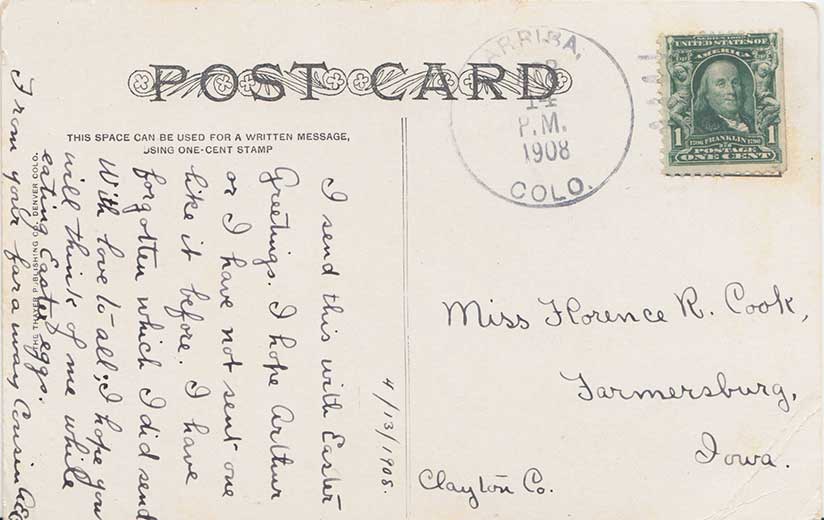 POST CARD
THIS SPACE CAN BE USED FOR A WRITTEN MESSAGE,
USING ONE-CENT STAMP
ARRIBA,
14
P.M.
1908
COLO.
UNITED STATES OF
AMERICA
1 FRANKLIN
POSTAGE
ONE CENT
4/13/1908.
I send this with Easter
Greetings. I hope Arthur
or I have not sent one
like it before. I have
forgotten which I did send
With love to all; I hope you
will think of me while
eating Easter eggs.
From your far away Cousin
THE THAYER PUBLISHING CO. DENVER COLO.
Miss Florence R. Cook,
Farmersburg,
Iowa.
Clayton Co.